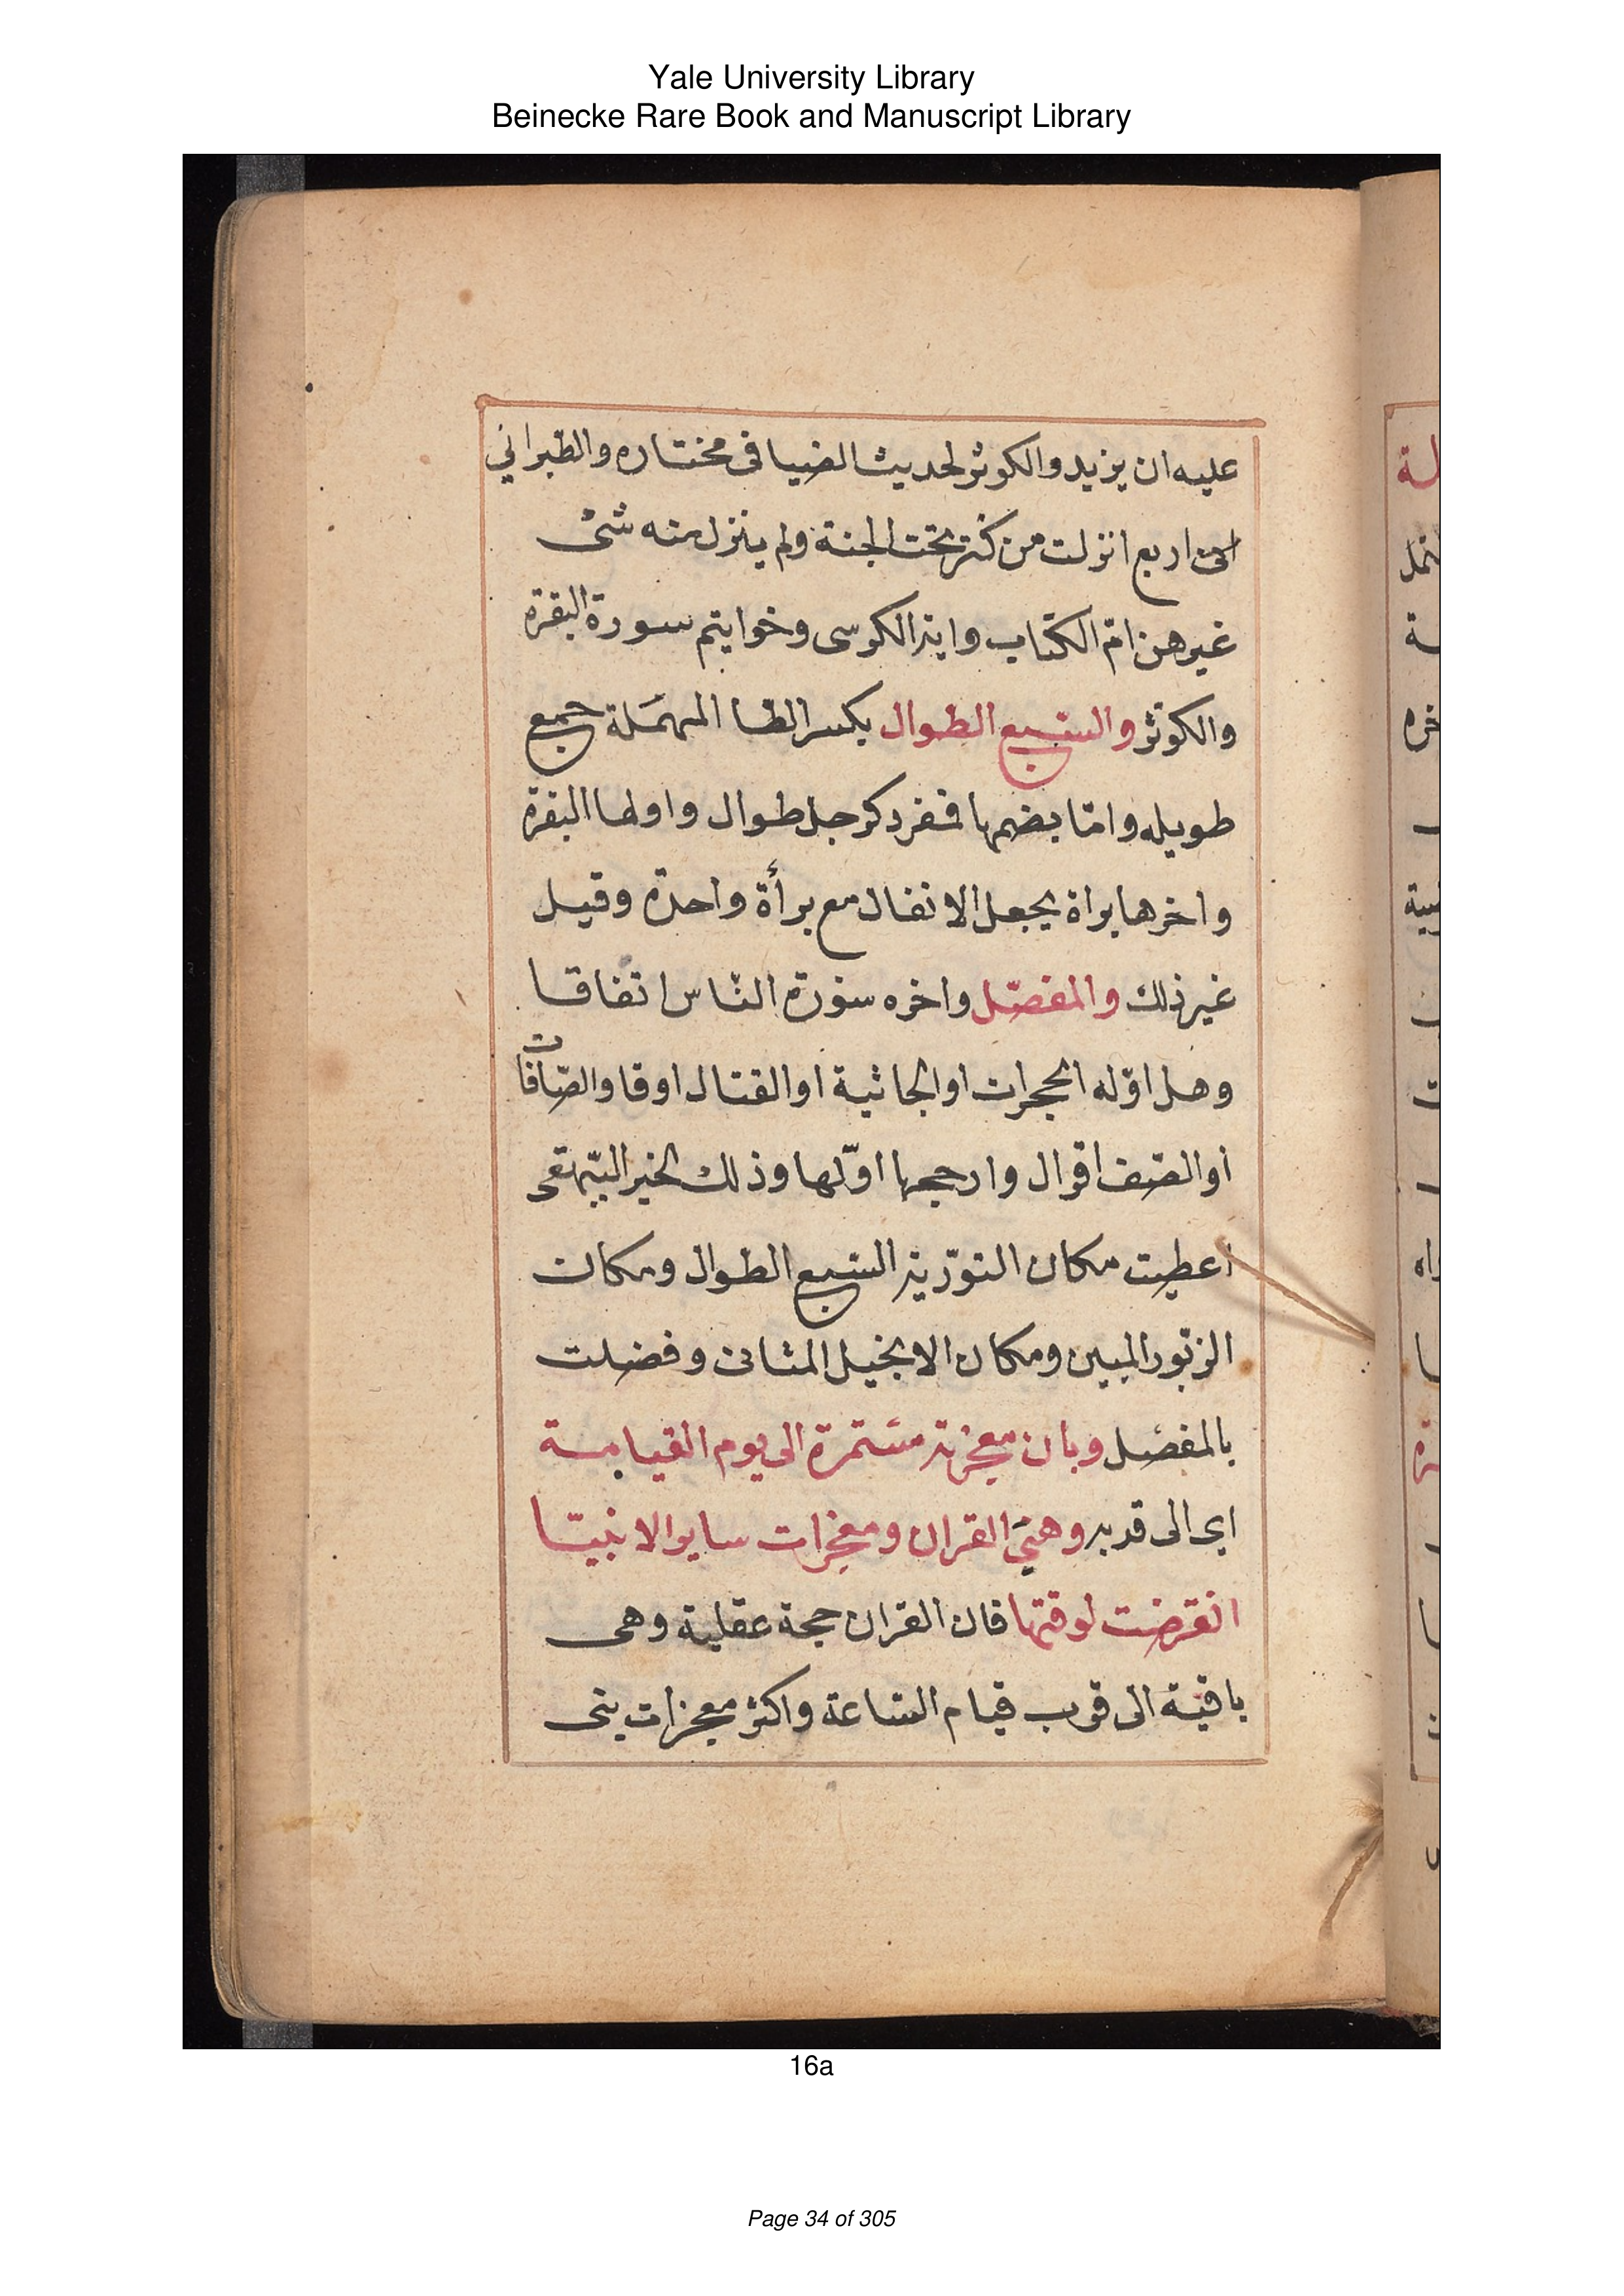 Yale University Library
Beinecke Rare Book and Manuscript Library
عليه ان يزيد والكوثر لحديث الضيا فى مختاره والطبراني
اربع انزلت من كنز تحت الجنة ولم ينزل منه شئ
غيرهن امّ الكتاب واية الكرسى وخواتيم سورة البقرة
والكوثر والسبع الطوال بكسر الطا المهملة جمع
طويله وامّا بضمها فمفرد كرجل طوال واولها البقرة
واخرها براة بجعل الانفال مع برأة واحدة وقيل
غير ذلك والمفصّل واخره سورة النّاس اتفاقا
وهل اوّله الحجرات او الجاثية او القتال او قا والصّافات
او الصّف اقوال وارجحها اوّلها وذلك لخبر البيهقى
اعطيت مكان التورية السبع الطوال ومكان
الزبور المبين ومكان الانجيل المثانى وفضلت
بالمفصل وبان معجزته مستمرة الى يوم القيامة
اى الى قربه وهىَ القران ومعجزات ساير الانبيا
انقرضت لوقتها فان القران حجة عقلية وهى
باقية الى قرب قيام الساعة واكثر معجزات بنى
لة
خره
واه
16a
Page 34 of 305